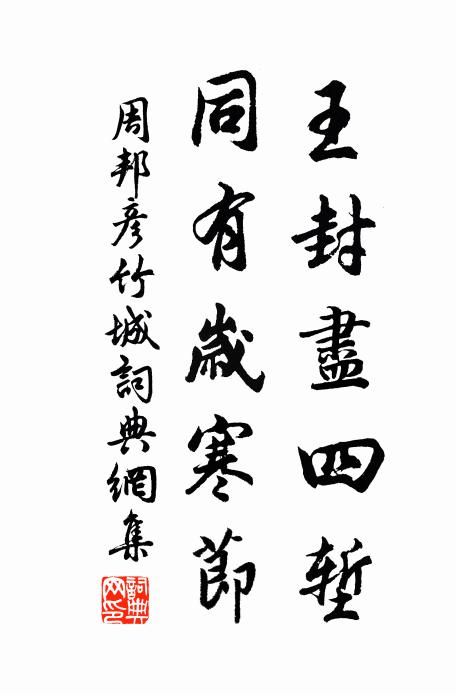 王封盡四塹
同有歲寒節
周邦彥竹城詞典網集
詞典网印